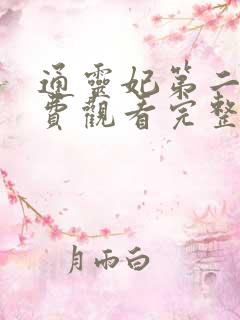 通靈妃第二
費觀看完整
月雨白